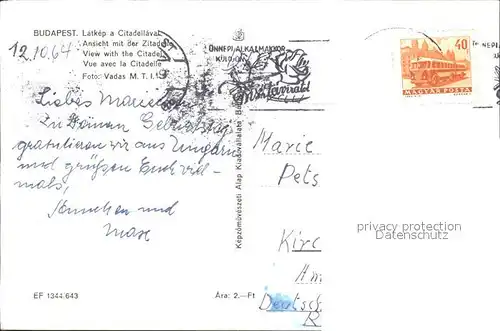 BUDAPEST. Latkép a Citadellával
Ansicht mit der Zitadelle
View with the Citadel
Vue avec la Citadelle
Foto: Vadas M. T. I.
12.10.64
ÜNNEPI ALKALMAKKOR
KÜLDJÖN
40
MAGYAR POSTA
Liebes
zu Deinem Geburtstag
gratulieren wir aus Ungarn
und grüßen Euch viel-
mals,
Ännchen und
Max
Képzőművészeti Alap Kiadóvállalata
Marie
Pets
Kirc
Am
Deutsch
R
privacy protection
Datenschutz
EF 1344/643
Ára: 2.–Ft